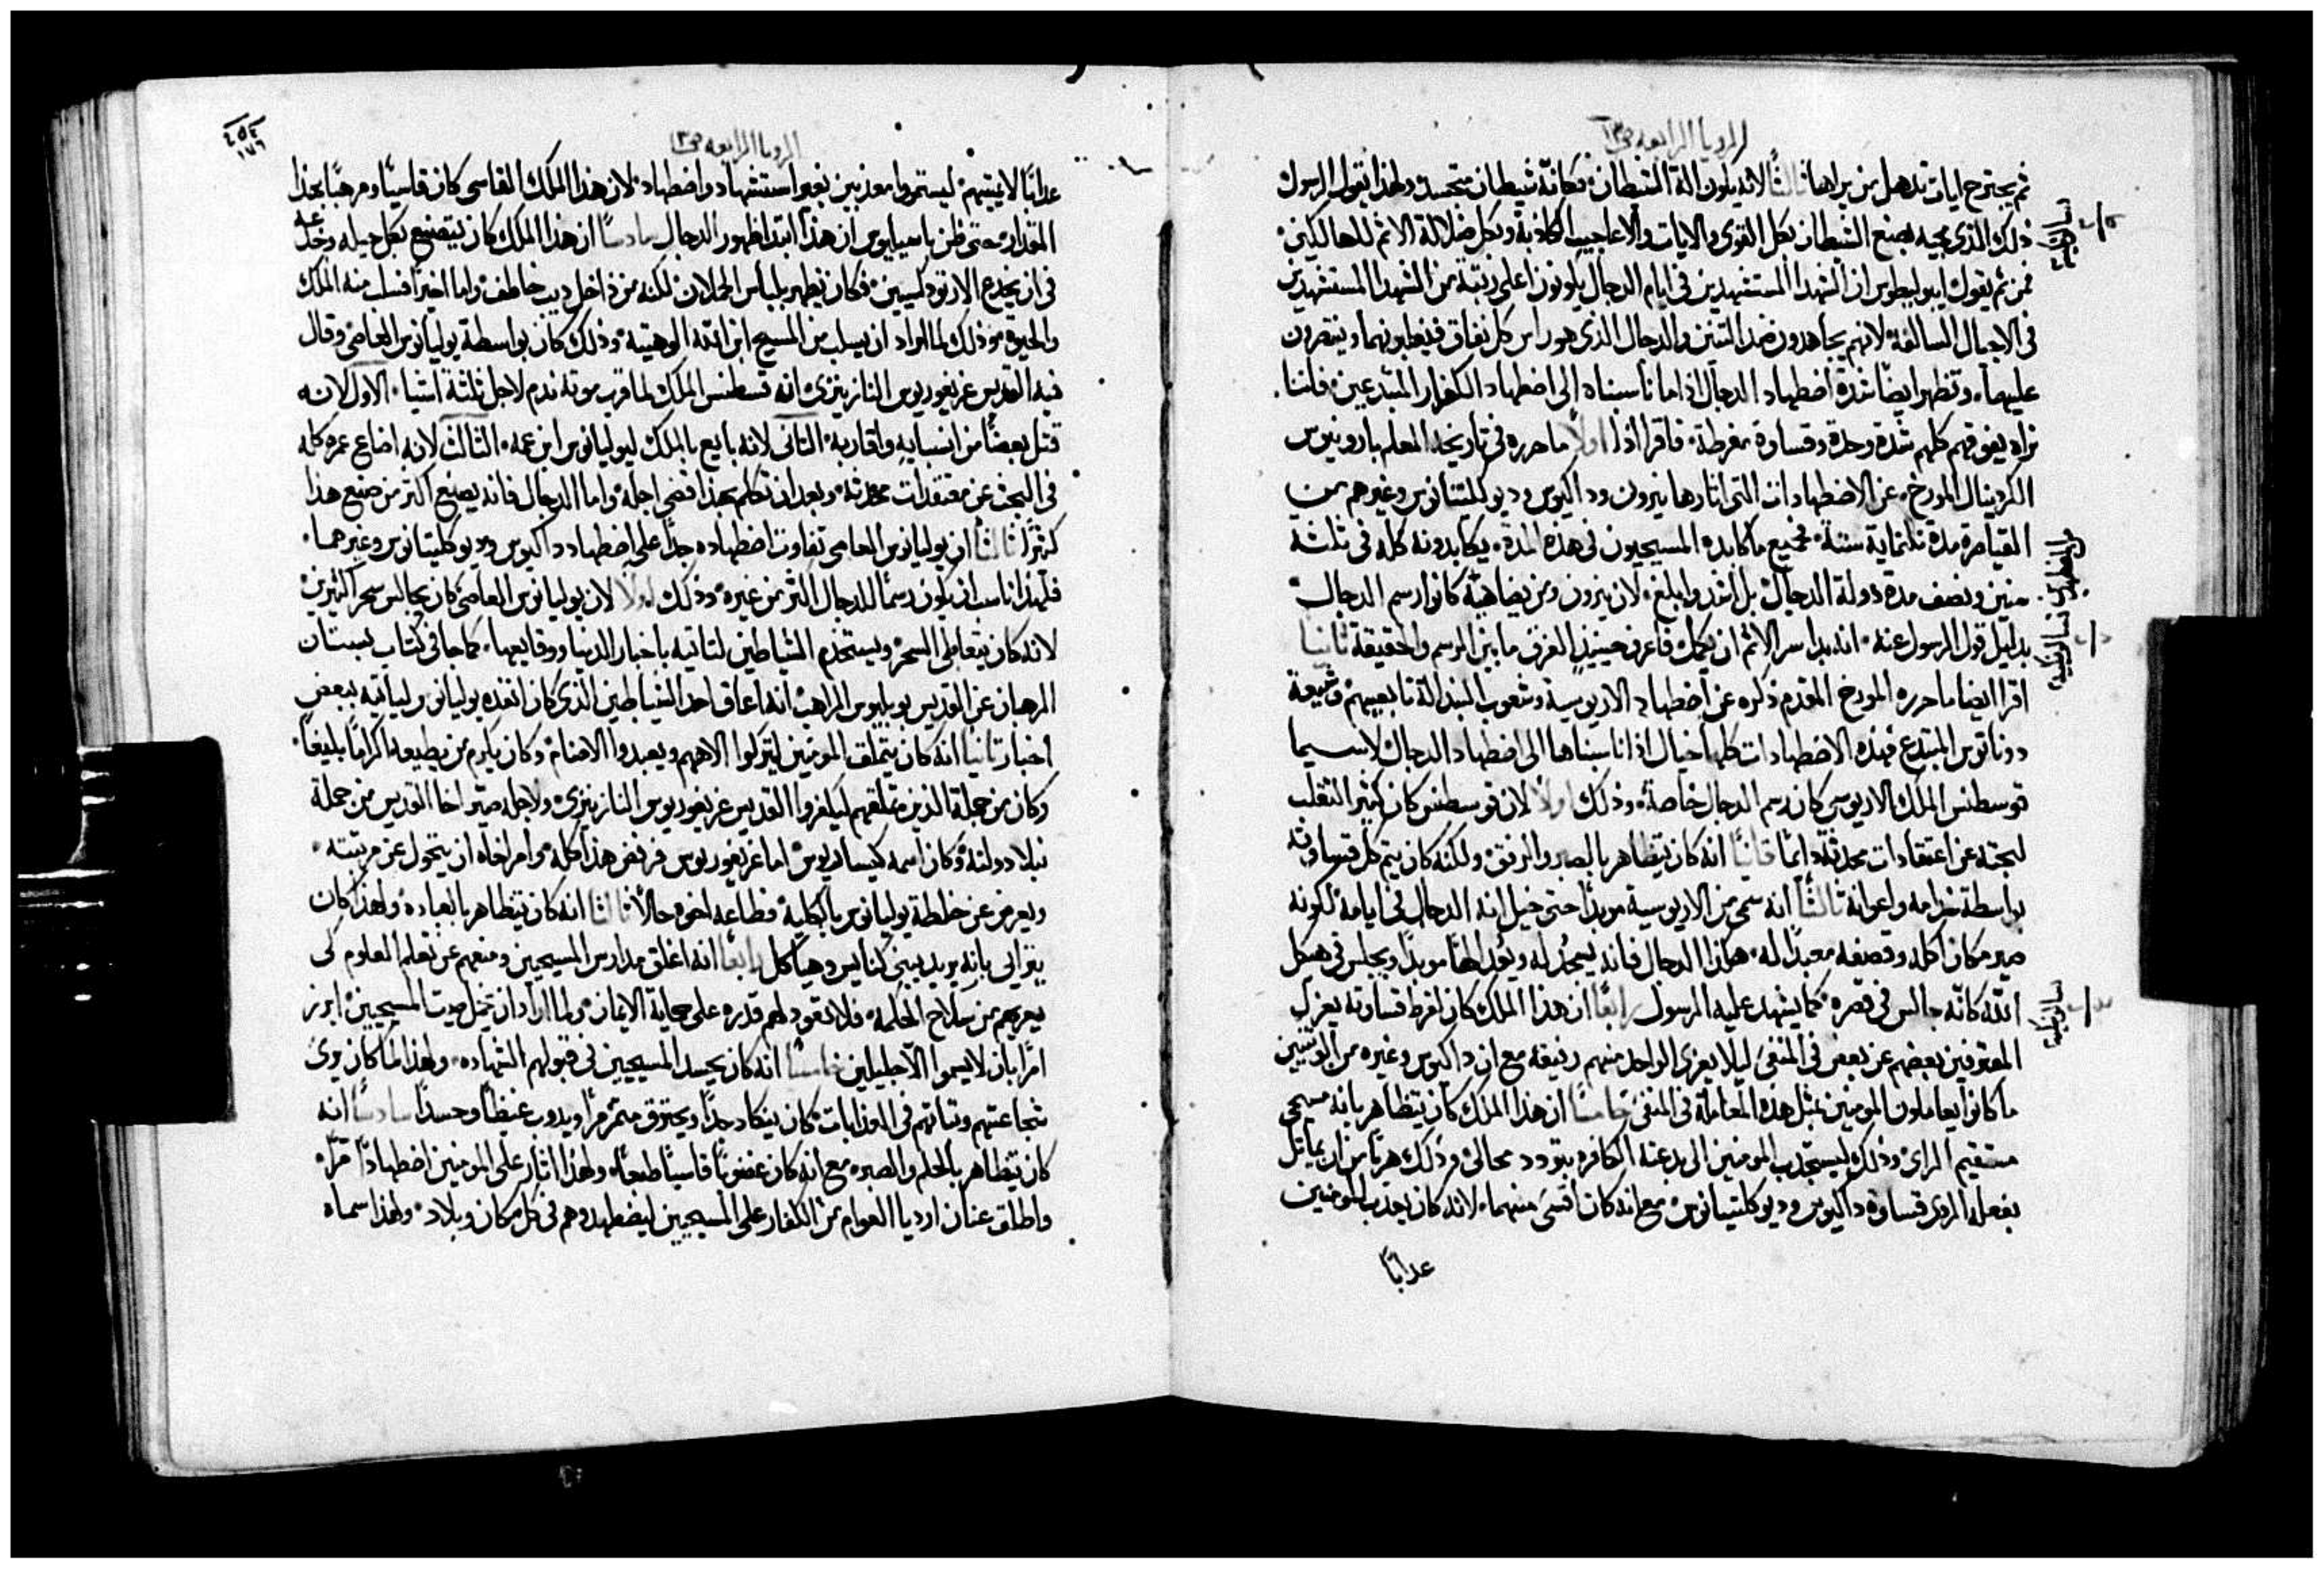 الرويا الرابعه ص١٣
ثم يجترح ايات تدهل من يراها ثالثًا لانه يكون الة الشيطان فكانه شيطان متجسد ولهذا يقول الرسول
ذلك الذي مجيه بصنع الشيطان بكل القوى والايات والاعاجيب الكاذبة وبكل ضلالة الاثم للهالكين
فمن ثم يقول ايبوليطوس ان الشهدا المستشهدين في ايام الدجال يكونون اعلى رتبة من الشهدا المستشهدين
في الاجيال السالفة لانهم يجاهدون ضد التنين والدجال الذي هو راس كل نفاق فيغلبونهما وينتصرون
عليهما وتظهر ايضًا شدة اضطهاد الدجال اذا ما ناسبناه الى اضطهاد الكفار المبتدعين فاننا
نراه يفوقهم كلهم شدة وحدة وقساوة مفرطة فاقرا اذا اولًا ما حرره في تاريخه المعلم بارونيوس
الكردينال المورخ عن الاضطهادات التي اثارها نيرون وداكيوس وديوكليتيانوس وغيرهم من
القياصرة مدة ثلثماية سنة فجميع ما كابده المسيحيون في هذه المدة يكابدونه كله في ثلثة
سنين ونصف مدة دولة الدجال بل اشد وابلغ لان نيرون ومن يضاهيه كانوا رسم الدجال
بدليل قول الرسول عنه انه بدا سر الاثم ان يكمل فاعرف حينيذٍ الفرق ما بين الرسم والحقيقة ثانيا
اقرا ايضا ما حرره المورخ المقدم ذكره عن اضطهاد الاريوسية وشعوب البندالة تابعيهم وشيعة
دوناتوس المبتدع فهذه الاضطهادات كلها خيال اذا ناسبناها الى اضطهاد الدجال لاسيما
قوسطنس الملك الاريوسي كان رسم الدجال خاصة وذلك اولًا لان قوسطنس كان كثير التقلب
لبحثه عن اعتقادات محدثة دايمًا ثانيًا انه كان يتظاهر بالصبر والرفق ولكنه كان يتم كل قساوته
بواسطة خدامه واعوانه ثالثًا انه سمي من الاريوسية موبدًا حتى خيل انه الدجال في ايامه لكونه
صير مكان اكله وقصفه معبدًا له هكذا الدجال فانه يسجد له ويُعد الهًا موبدًا ويجلس في هيكل
الله كانه جالس في قصره كما يشهد عليه الرسول رابعًا ان هذا الملك كان لفرط قساوته يعزل
المعترفين بعضهم عن بعض في المنفى ليلا يعزى الواحد منهم رفيقه مع ان داكيوس وغيره من الوثنيين
ما كانوا يعاملون المومنين بمثل هذه المعاملة في المنفى خامسًا ان هذا الملك كان يتظاهر بانه مسيحي
مستقيم الراي وذلك ليستجذب المومنين الى بدعته الكافره بتودد محالي وذلك هربًا من ان يماثل
بفعله الردي قساوة داكيوس وديوكلتيانوس مع انه كان اقسى منهما لانه كان يعذب المومنين
عذابًا
٤٥٤
١٧٦
الرويا الرابعه ص١٣
عذابًا لا ينتهم ليستمروا معذبين بغير استشهاد واضطهاد لان هذا الملك القاسي كان قاسيًا ومرهبًا بهذا
المقدار حتى ظن باسيليوس ان هذا ابتدا ظهور الدجال سادسًا ان هذا الملك كان يتصنع بكل حيله وخدعه
في ان يخدع الارتودكسيين فكان يظهر بلباس الحملان لكنه من داخل ديب خاطف واما اخيرًا فسلب منه الملك
والحيوة وذلك لما اراد ان يسلب من المسيح ابن الله الوهيته وذلك كان بواسطة يوليانوس العاصي وقال
فيه القديس غريغوريوس النازينزي انه قسطنس الملك لما قرب موته ندم لاجل ثلثة اشيا الاول لانه
قتل بعضًا من انسبايه واقاربه الثاني لانه بايع بالملك ليوليانوس ابن عمه الثالث لانه اضاع عمره كله
في البحث عن معتقدات محدثة وبعد ان تكلم بهذا قضى اجله واما الدجال فانه يصنع اكثر من صنيع هذا
كثيرًا ثالثًا ان يوليانوس العاصي تفاوت اضطهاده جدًا على اضطهاد داكيوس وديوكليتانوس وغيرهما
فلهذا ناسب ان يكون رسمًا للدجال اكثر من غيره وذلك اولًا لان يوليانوس العاصي كان يجالس سحرا كثيرين
لانه كان يتعاطى السحر ويستخدم الشياطين لتاتيه باخبار الدنيا ووقايعها كما جا في كتاب بستان
الرهبان عن القديس بوبليوس الراهب انه اعاق احد الشياطين الذي كان انفده يوليانوس لياتيه ببعض
اخبار ثانيا انه كان يتملق المومنين ليتركوا الاههم ويعبدوا الاصنام وكان يكرم من يطيعه اكرامًا بليغًا
وكان من جملة الذين تملقهم ليكفروا القديس غريغوريوس النازينزي ولاجله صير اخا القديس من جملة
نبلا دولته وكان اسمه كيساريوس اما غريغوريوس فرفض هذا كله وامر اخاه ان يتحول عن مرتبته
ويعرض عن خلطة يوليانوس بالكلية فطاعه اخوه حالًا ثالثا انه كان يتظاهر بالعباده ولهذا كان
يترايى بانه يريد يبني كنايس وهياكل رابعًا انه اغلق مدارس المسيحيين ومنعهم عن تعلم العلوم لكي
يعريهم من سلاح الحكمه فلا تعود لهم قدره على حماية الايمان ولما اراد ان يخمل صيت المسيحيين ابرز
امرًا بان لا يسموا الا جليليين خامسًا انه كان يحسد المسيحيين في قبولهم الشهاده ولهذا لما كان يرى
شجاعتهم وثباتهم في العذابات كان ينكاد جدًا ويحترق متمرمرًا ويدوب غيظًا وحسدًا سادسًا انه
كان يتظاهر بالحلم والصبر مع انه كان غضوبًا قاسيًا طبعًا ولهذا اثار على المومنين اضطهادًا مرًا
واطلق عنان ارديا العوام من الكفار على المسيحيين ليضطهدوهم في كل مكان وبلاد ولهذا سماه